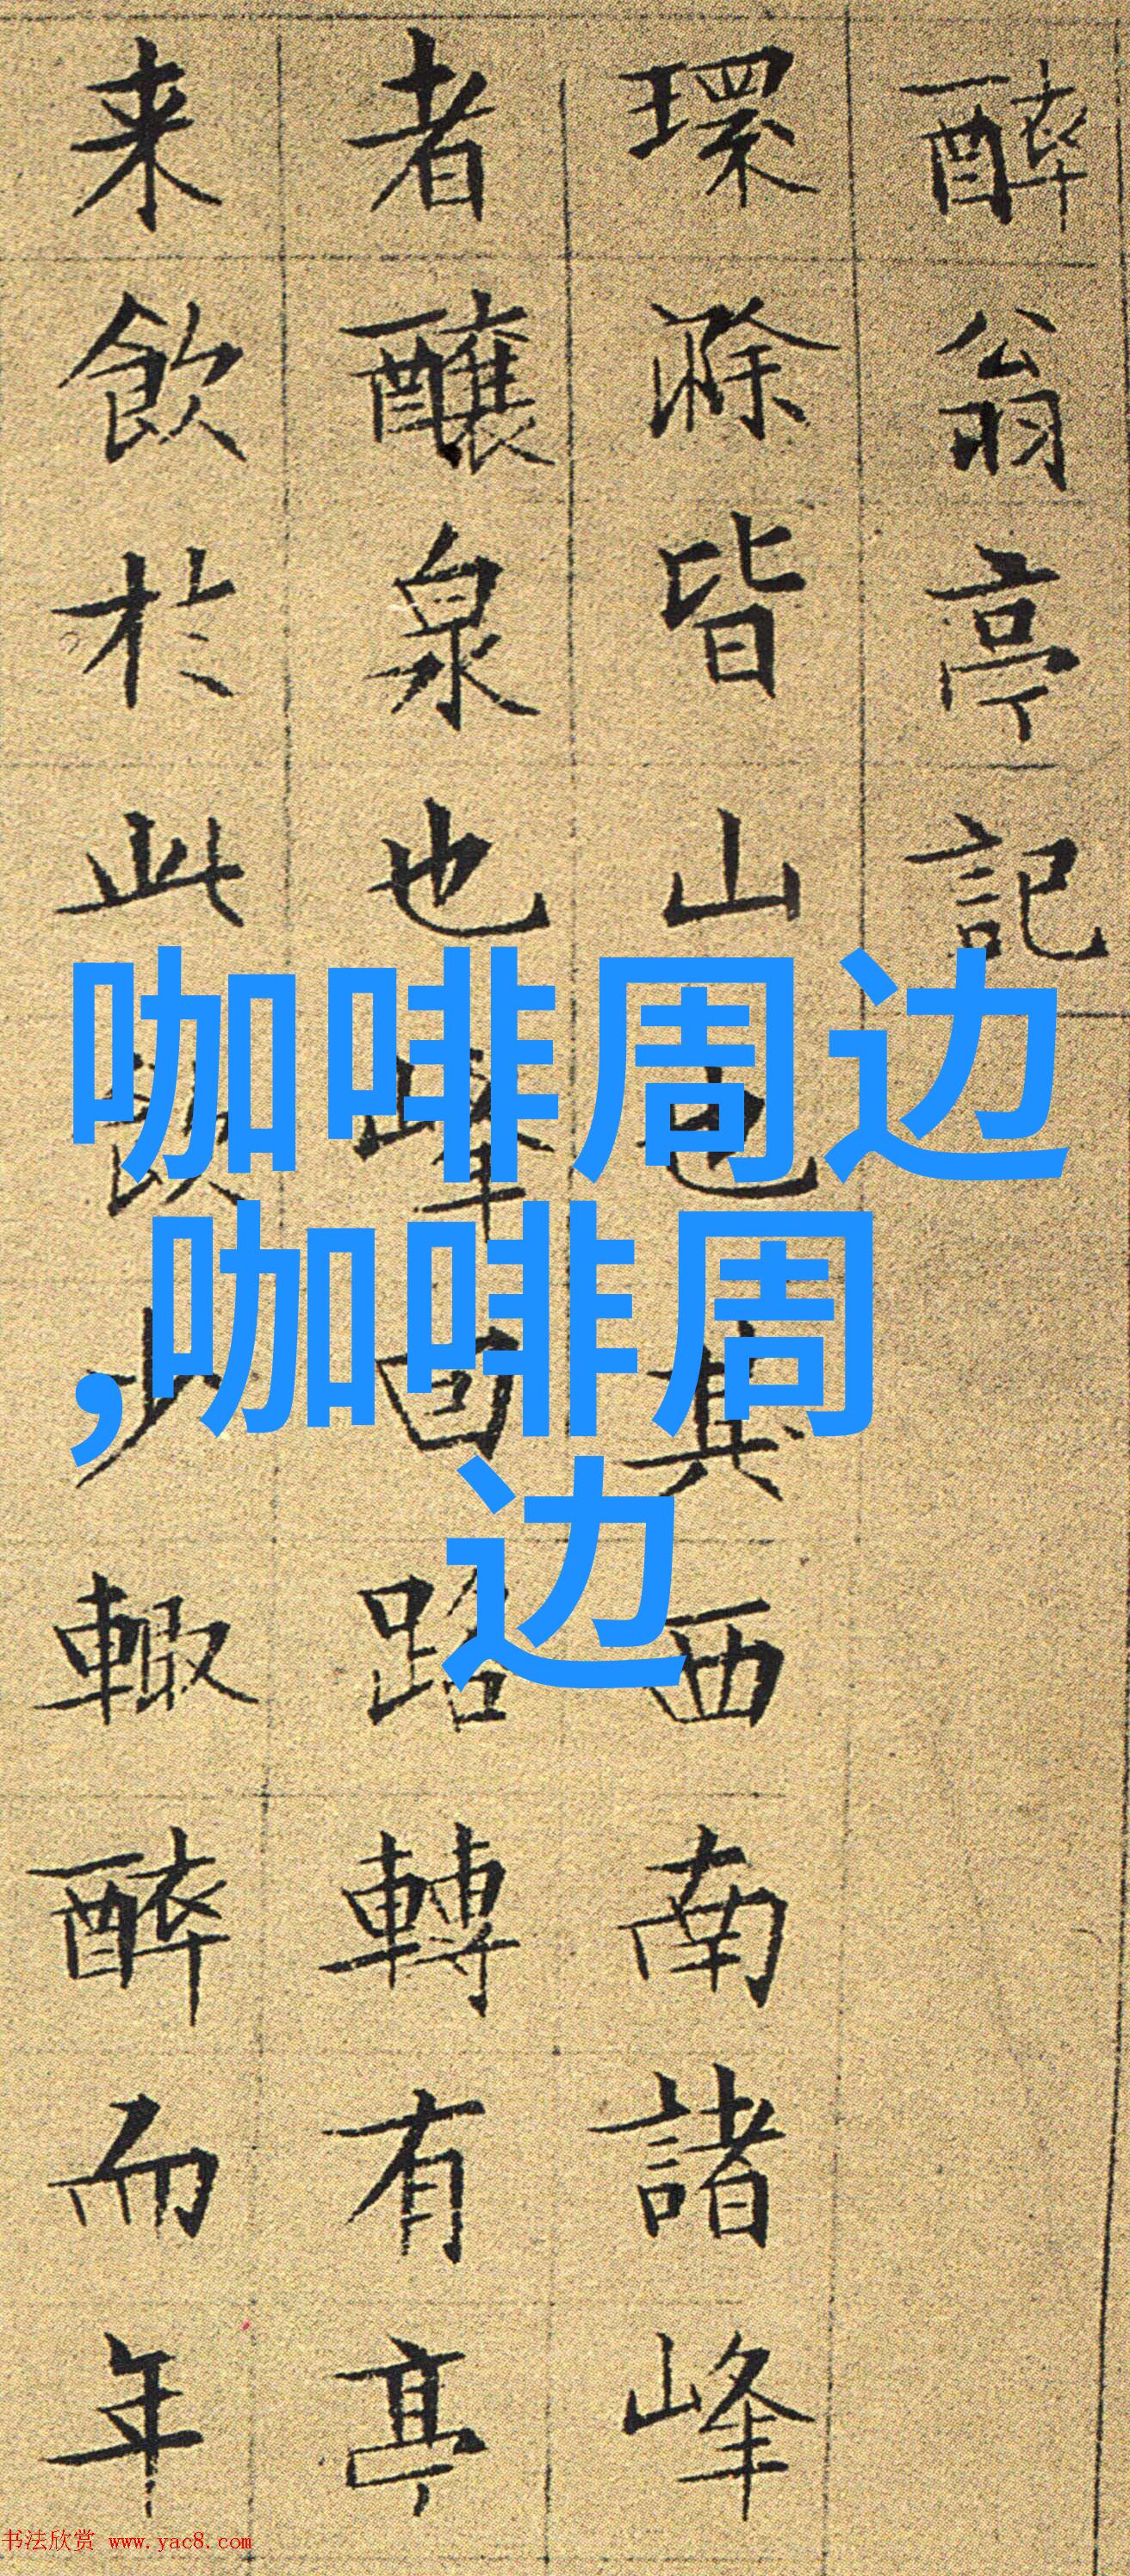 醉翁亭記
環滁皆山也其西南諸峰
者釀泉也峰回路轉有亭
来飲於此飲少輙醉而年
咖啡周边
,咖啡周
边
书法欣赏 www.yac8.com